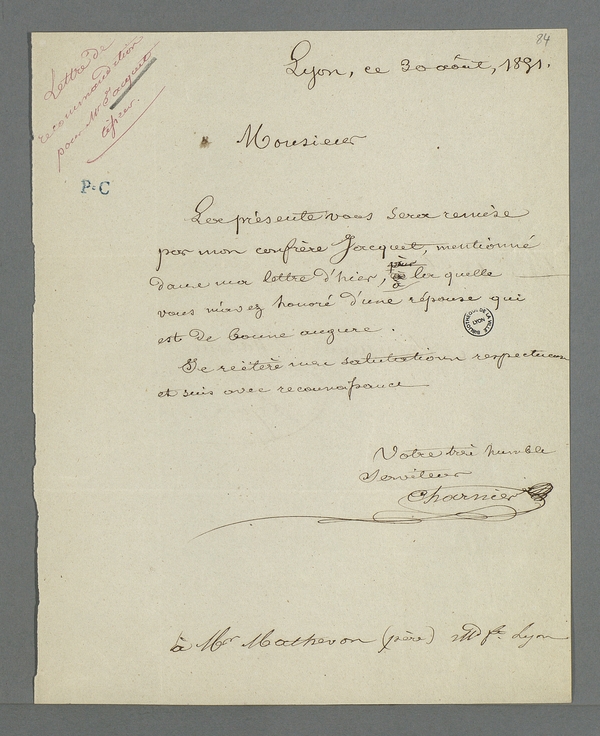 84
Lettre de
recommandation
pour Mr Jacquet
tisseur.
P.C
Lyon, ce 30 août, 1831.
Monsieur
La présente vous sera remise
par mon confrère Jacquet, mentionné
dans ma lettre d'hier, à la quelle
vous m'avez honoré d'une réponse qui
est de bonne augure.
Je réitère mes salutations respectueuses
et suis avec reconnaissance
Votre très humble
Serviteur
Charnier
BIBLIOTHEQUE DE LA VILLE
LYON
à Mr Mathevon (père) Md ft. Lyon